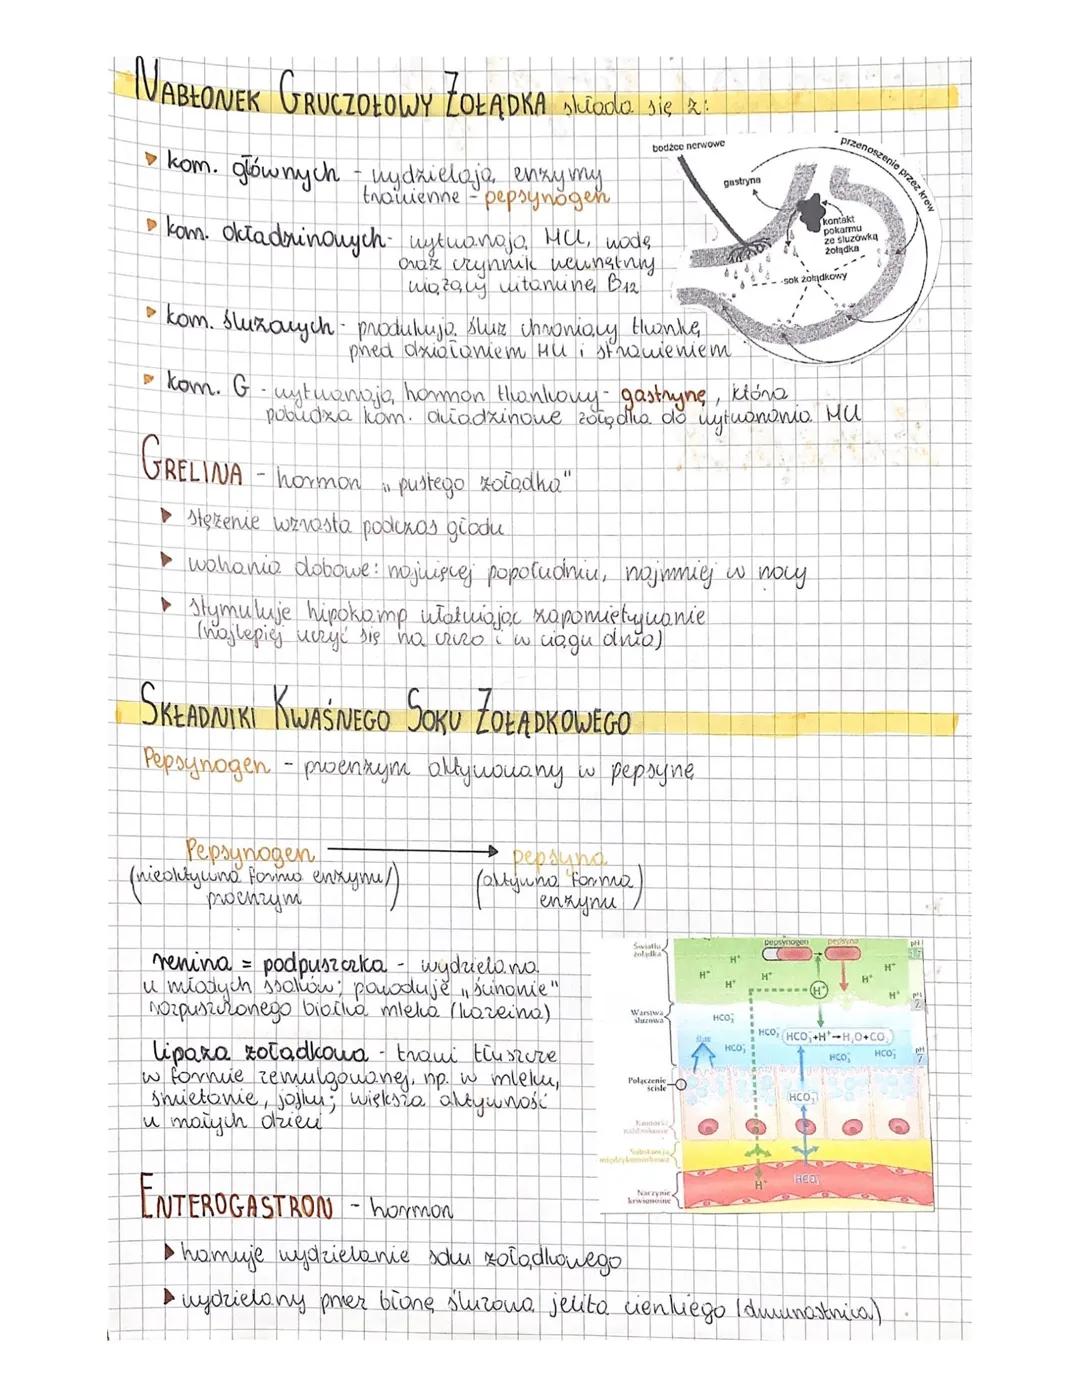 NABŁONEK GRUCZOŁOWY ŻOŁĄDKA składa się z:
kom. głównych - wydzielają enzymy
trawienne - pepsynogen
kom. okładzinowych - wytwarzają HCl, wodę
oraz czynnik wewnętrzny
wiążący witaminę B12
kom. śluzowych - produkują śluz chroniący tkankę
przed działaniem HCl i strawieniem
kom. G - wytwarzają hormon tkankowy - gastrynę, która
pobudza kom. okładzinowe żołądka do wytwarzania HCl
bodźce nerwowe
przenoszenie przez krew
gastryna
kontakt
pokarmu
ze śluzówką
żołądka
sok żołądkowy
GRELINA - hormon „pustego żołądka"
stężenie wzrasta podczas głodu
wahania dobowe: najwięcej popołudniu, najmniej w nocy
stymuluje hipokamp ułatwiając zapamiętywanie
(najlepiej uczyć się na czczo i w ciągu dnia)
SKŁADNIKI KWAŚNEGO SOKU ŻOŁĄDKOWEGO
Pepsynogen - proenzym aktywowany w pepsynę
Pepsynogen → pepsyna
(nieaktywna forma enzymu/) (aktywna forma)
proenzym enzymu
renina = podpuszczka - wydzielana
u młodych ssaków; powoduje „ścinanie"
rozpuszczonego białka mleka (kazeina)
lipaza żołądkowa - trawi tłuszcze
w formie zemulgowanej, np. w mleku,
śmietanie, jajku; większa aktywność
u małych dzieci
Światło
żołądka
pepsynogen pepsyna
pH
H+ H+ H+ H+ H+ H+ H+
H+
pH
2
Warstwa
śluzowa
HCO3-
HCO3- HCO3-+H+→H2O+CO2
śluz
HCO3- HCO3- HCO3-
pH
7
Połączenie
ścisłe
HCO3-
Komórki
nabłonkowe
Substancja
międzykomórkowa
Naczynie
krwionośne
H+ HCO3-
ENTEROGASTRON - hormon
hamuje wydzielanie soku żołądkowego
wydzielany przez błonę śluzową jelita cienkiego (dwunastnica)